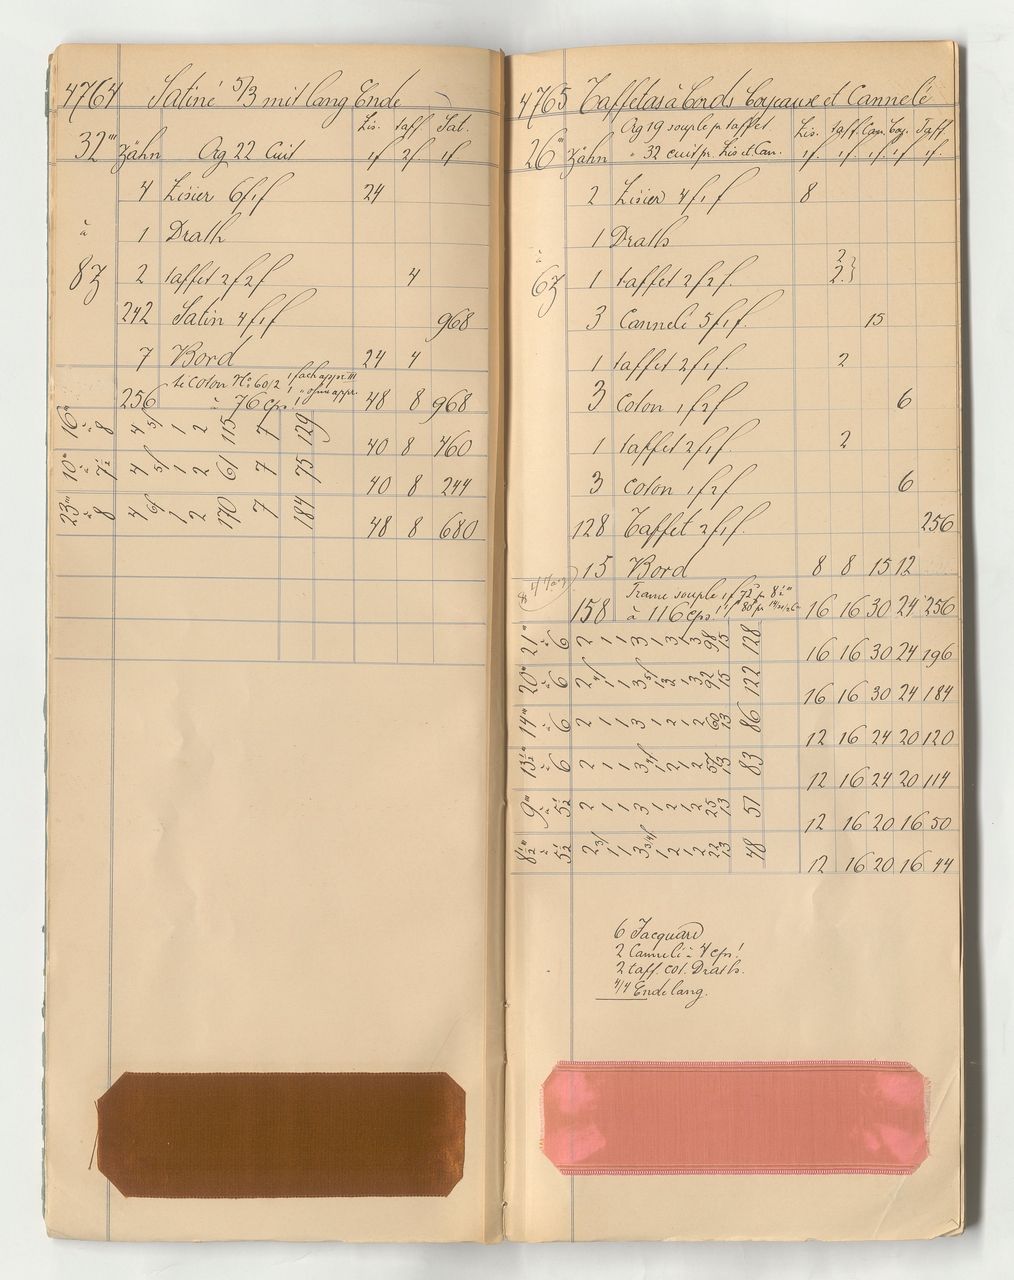 4764 Satiné 5/3 mit lang Ende
Lis. taff Sat.
32''' Zähn Org 22 Cuit 1f 2f 1f
4 Lisier 6f1f 24
à 1 Drath
8Z 2 taffet 2f2f 4
242 Satin 4f1f 968
7 Bord 24 4
te Coton No 60/2 1 fach appr.
256 à 76 cps. 1 " ohne appr. 48 8 968
16''' à 8 4 5f 1 2 115 7 129 40 8 460
10''' à 7½ 4 5f 1 2 61 7 75 40 8 244
23''' à 8 4 6f 1 2 170 7 184 48 8 680
4765 Taffetas à bords boyeaux et Cannelé
Org 19 souple pr taffet. Lis. taff. Can. boy. Taff
26''' Zähn " 32 cuit pr. Lis et Can. 1f. 1f. 1f. 1f 1f.
2 Lisier 4f1f 8
1 Drath
à 2
6Z 1 taffet 2f2f. 2.}
3 Cannelé 5f1f. 15
1 taffet 2f1f. 2
3 Colon 1f2f 6
1 taffet 2f1f. 2
3 Colon 1f2f 6
128 Taffet 2f1f. 256
15 Bord 8 8 15 12
Trame souple 1f 72 pr 8½'''
158 à 116 cps. 16 16 30 24 256
21''' à 6 2 1 1 3 1 3 1 3 98 15 128 16 16 30 24 196
20''' à 6 2 1 1 3 1 3 92 15 122 16 16 30 24 184
14''' à 6 2 1 1 3 1 2 1 2 60 13 86 12 16 24 20 120
13½''' à 6 2 1 1 3 1 2 1 2 57 13 83 12 16 24 20 114
9''' à 5½ 2 1 1 3 1 2 1 2 25 13 51 12 16 20 16 50
8½''' à 5½ 2 1 1 3 1 2 1 2 22 13 48 12 16 20 16 44
6 Jacquard
2 Cannelé à 4 cps!
2 taff. col. Drath.
4/4 Ende lang.